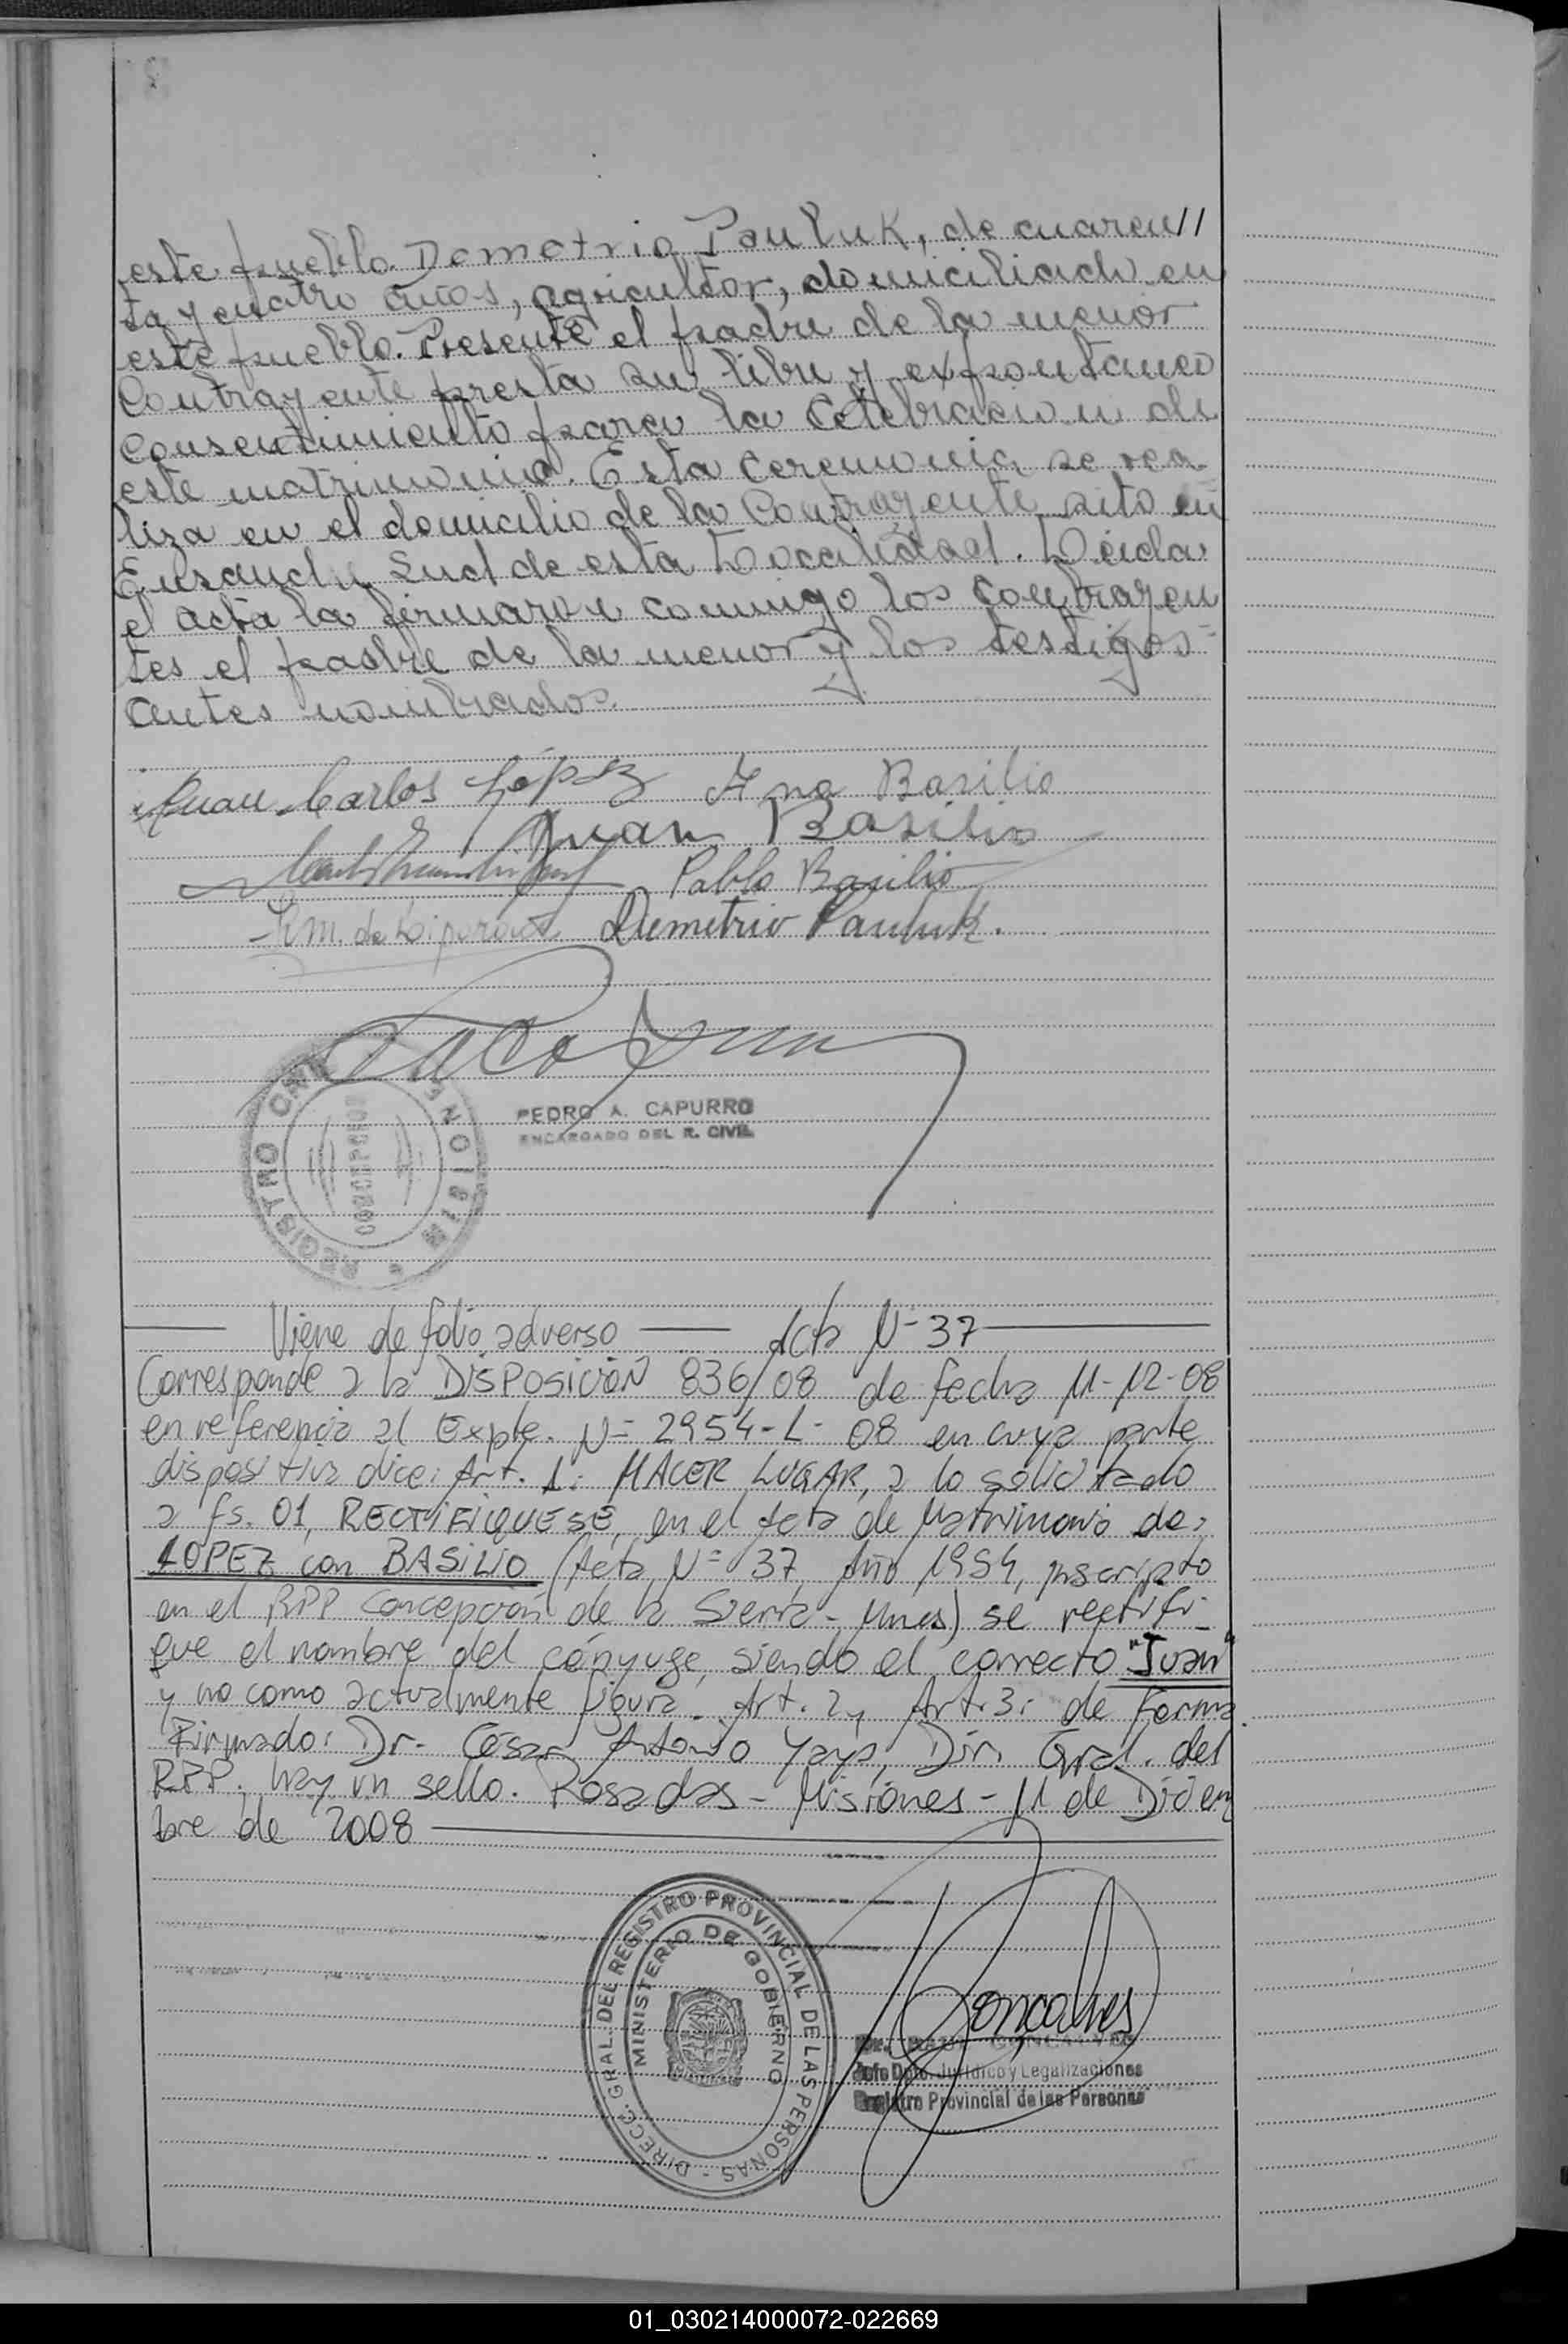 este pueblo. Demetrio Pauluk, de cuaren//
ta y cuatro años, agricultor, domiciliado en
este pueblo. Presente el padre de la menor
Contrayente presta su libre y expontaneo
Consentimiento para la Celebracion de
este matrimonio. Esta Ceremonia se rea-
liza en el domicilio de la Contrayente sito en
Ensanche Sud de esta Localidad. Leida
el acta la firmaron conmigo los Contrayen
tes el padre de la menor y los testigos=
antes nombrados.
Juan Carlos López Ana Basilio
Juan Basilio
Pablo Basilio
Demetrio Pauluk.
REGISTRO CIVIL
CONCEPCION
MISIONES
PEDRO A. CAPURRO
ENCARGADO DEL R. CIVIL
Viene de folio adverso Acta N= 37
Corresponde a la DISPOSICIÓN 836/08 de fecha 11-12-08
en referencia al Expte. N= 2954-L- 08 en cuya parte
dispositiva dice: Art. 1: HACER LUGAR, a lo solicitado
a fs. 01, RECTIFIQUESE, en el Acta de Matrimonio de:
LOPEZ con BASILIO (Acta N= 37, Año 1954, inscripto
en el RPP Concepción de la Sierra - Mnes) se rectifi-
que el nombre del cónyuge, siendo el correcto "Juan"
y no como actualmente figura. Art. 2, Art. 3: de Forma.
Firmado: Dr. César Antonio Yaya, Dir. Gral. del
RPP. hay un sello. Posadas - Misiones - 11 de Diciem
bre de 2008
DIRECC. GRAL. DEL REGISTRO PROVINCIAL DE LAS PERSONAS -
MINISTERIO DE GOBIERNO
Goncalves
Jefe Dpto. Jurídico y Legalizaciones
Registro Provincial de las Personas
01_030214000072-022669